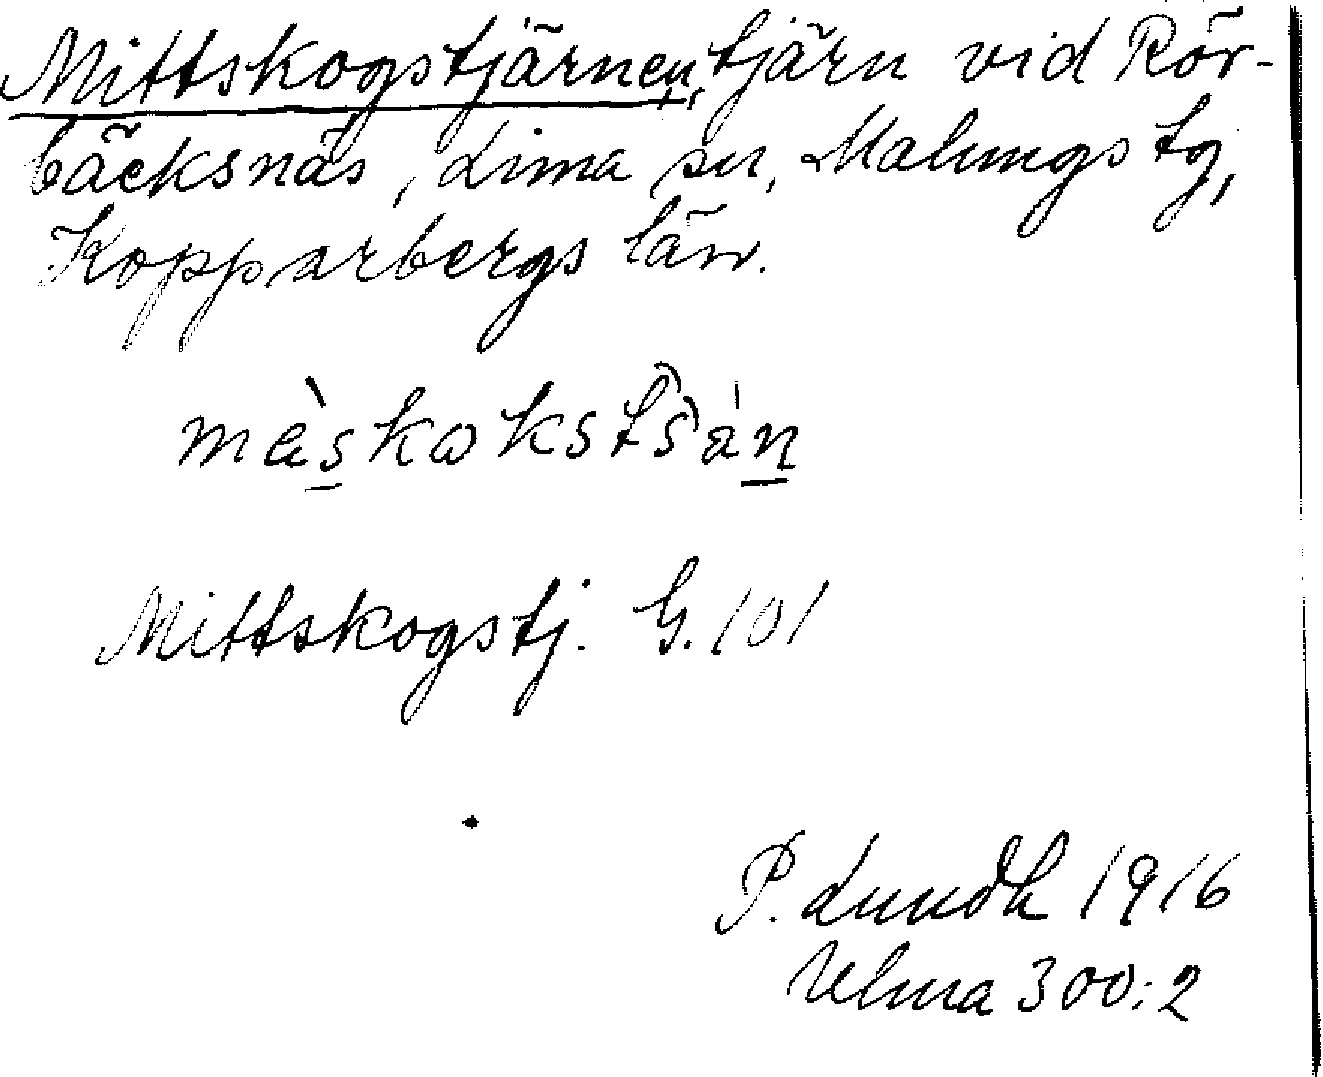 Mittskogstjärnen, tjärn vid Rör-
bäcksnäs, Lima sn, Malungs tg,
Kopparbergs län.
Mittskogstj. G. 101
P. Lundh 1916
Ulma 300:2